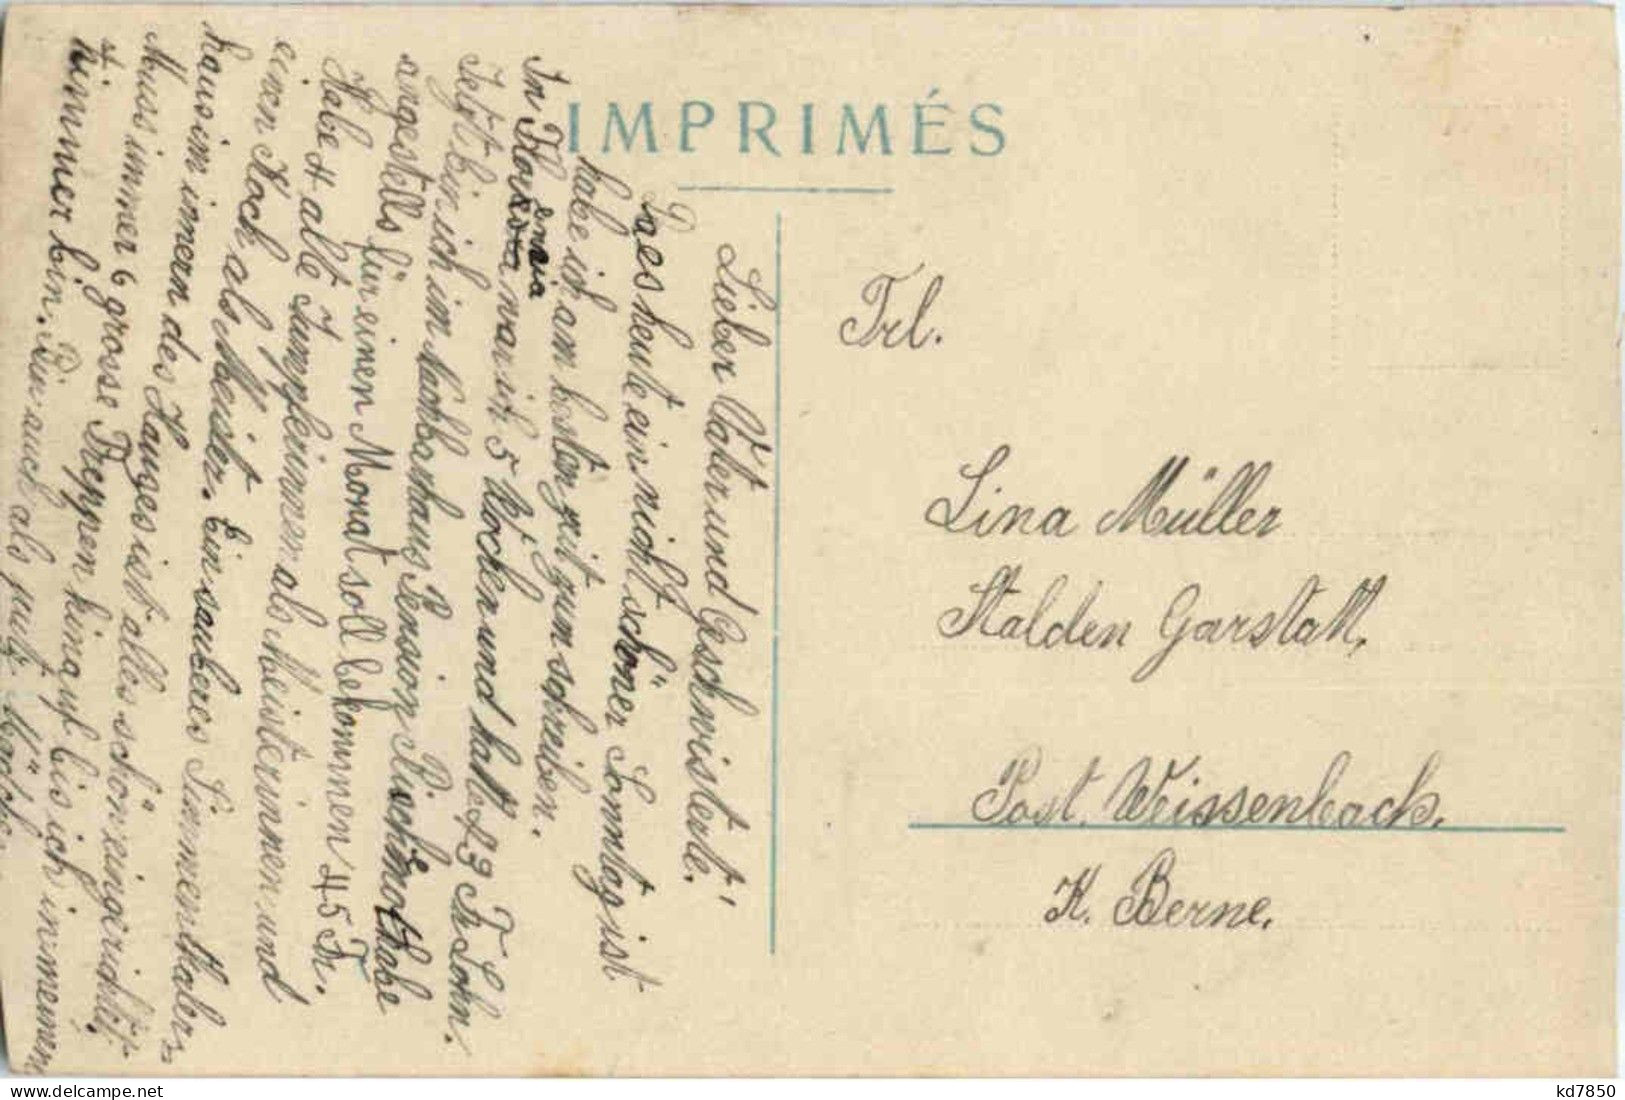 IMPRIMÉS
Lieber Vater und Geschwisterle!
Da es heute ein nicht schöner Sonntag ist
habe ich am besten zeit zum schreiben.
In Florissa war ich 5 Wochen und hatte 83 Fr. Lohn.
Jetzt bin ich im Nachbarhaus Pension
angestellt für einen Monat soll bekommen 45 Fr.
Habe 4 alte Jumpferinnen als Meisterinnen und
einen Koch als Meister. Ein sauberes Simmenthaler
haus im innern des Hauses ist alles schön eingerichtet.
Muss immer 6 grosse Treppen hinauf bis ich in meinem
Zimmer bin. Bin auch als
Frl.
Lina Müller
Stalden Garstatt,
Post. Weissenbach,
K. Berne.
kd7850